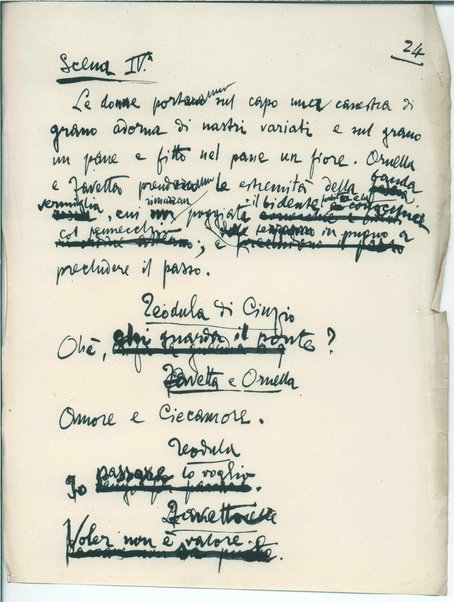 24
Scena IV.a
Le donne portano sul capo una canestra di
grano adorna di nastri variati e sul grano
un pane e fitto nel pane un fiore. Ornella
e Favetta prendono le estremità della banda
vermiglia, cui rimarran il bidente e la conocchia
col pennecchio in pugno a
precludere il passo.
Teodula di Cinzio
Ohè, chi guarda il ponte?
Favetta e Ornella
Amore e Ciecamore.
Teodula
Io passare lo voglio.
Favetta
Voler non è valore.